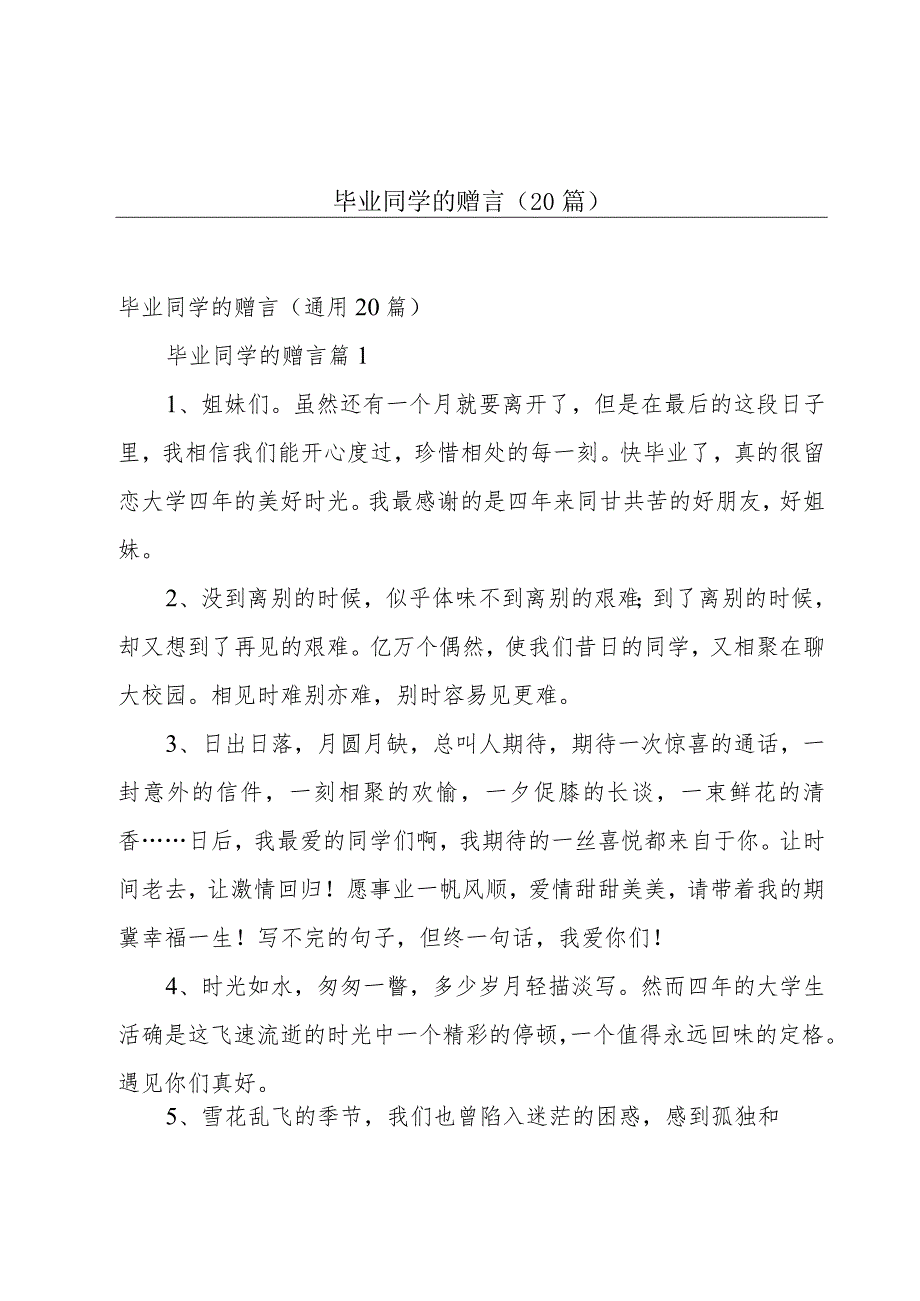 毕业同学的赠言（20 篇）
毕业同学的赠言（通用 20 篇）
毕业同学的赠言篇 1
1、姐妹们。虽然还有一个月就要离开了，但是在最后的这段日子
里，我相信我们能开心度过，珍惜相处的每一刻。快毕业了，真的很留
恋大学四年的美好时光。我最感谢的是四年来同甘共苦的好朋友，好姐
妹。
2、没到离别的时候，似乎体味不到离别的艰难；到了离别的时候，
却又想到了再见的艰难。亿万个偶然，使我们昔日的同学，又相聚在聊
大校园。相见时难别亦难，别时容易见更难。
3、日出日落，月圆月缺，总叫人期待，期待一次惊喜的通话，一
封意外的信件，一刻相聚的欢愉，一夕促膝的长谈，一束鲜花的清
香……日后，我最爱的同学们啊，我期待的一丝喜悦都来自于你。让时
间老去，让激情回归！愿事业一帆风顺，爱情甜甜美美，请带着我的期
冀幸福一生！写不完的句子，但终一句话，我爱你们！
4、时光如水，匆匆一瞥，多少岁月轻描淡写。然而四年的大学生
活确是这飞速流逝的时光中一个精彩的停顿，一个值得永远回味的定格。
遇见你们真好。
5、雪花乱飞的季节，我们也曾陷入迷茫的困惑，感到孤独和